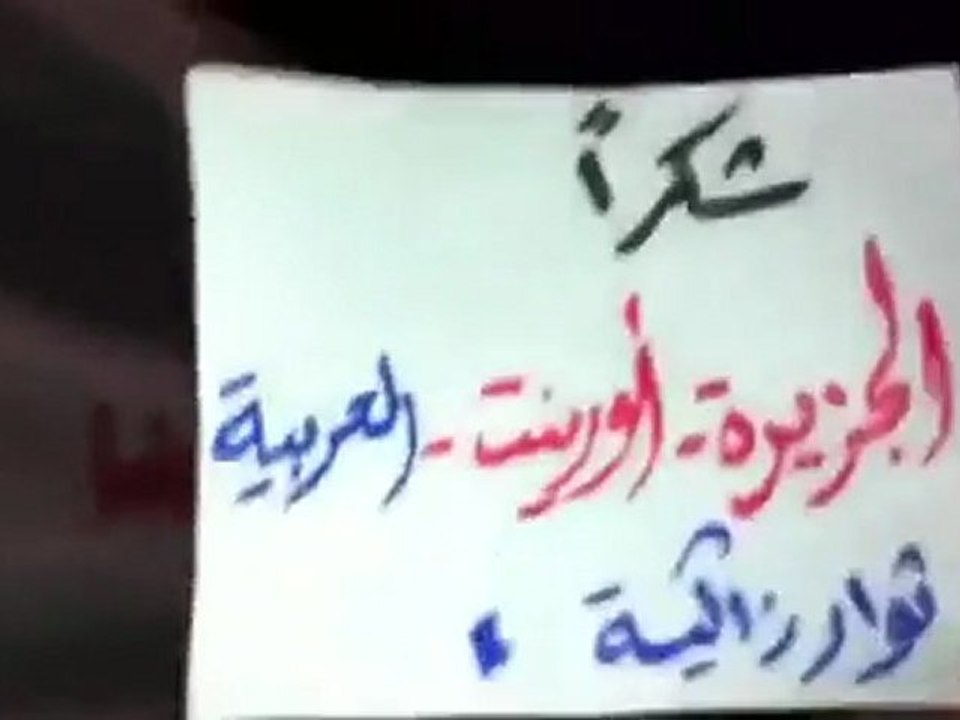 شكراً
الجزيرة - أورينت - العربية
ثوار